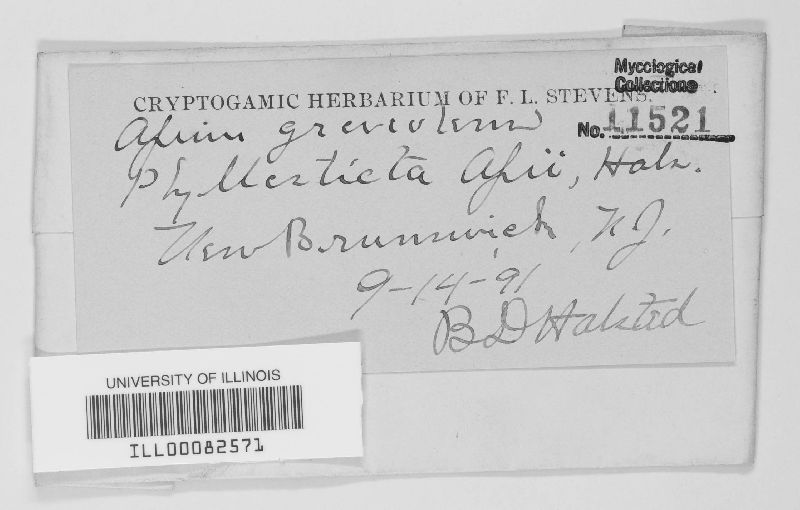 Mycological
Collections
CRYPTOGAMIC HERBARIUM OF F. L. STEVENS.
No. 11521
Apium graveolens
Phyllosticta Apii, Hals.
New Brunswick, N.J.
9-14-91
B D Halsted
UNIVERSITY OF ILLINOIS
ILL00082571